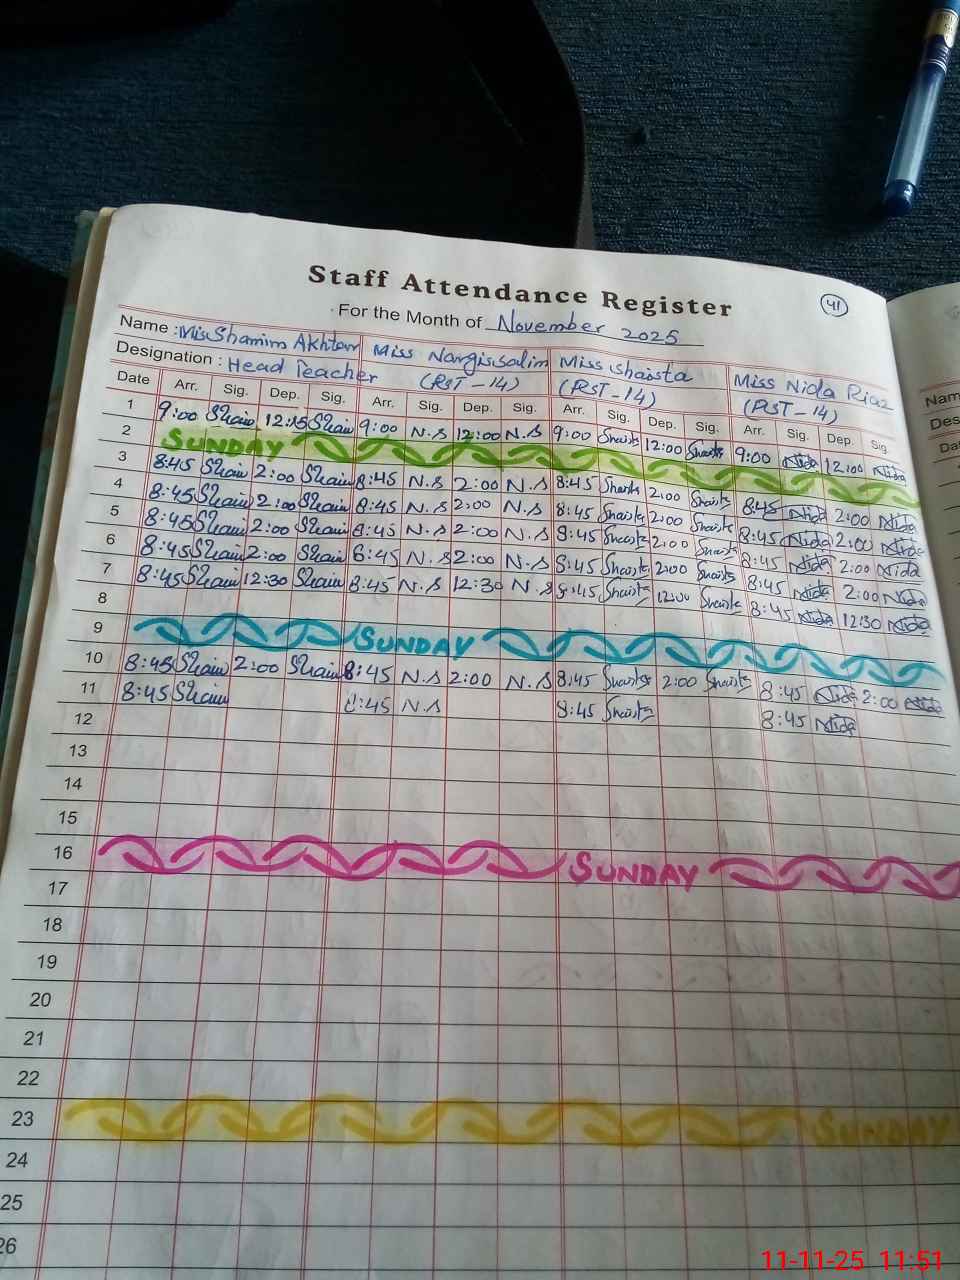 Staff Attendance Register
41
For the Month of November 2025
Name : Miss Shamim Akhtar Miss Nargis Salim Miss Shaista Miss Nida Riaz
Designation : Head Teacher (PST-14) (PST-14) (PST-14)
Date Arr. Sig. Dep. Sig. Arr. Sig. Dep. Sig. Arr. Sig. Dep. Sig. Arr. Sig. Dep. Sig.
1 9:00 12:15 9:00 N.S 12:00 N.S 9:00 Shaista 12:00 Shaista 9:00 Nida 12:00 Nida
2 SUNDAY
3 8:45 2:00 8:45 N.S 2:00 N.S 8:45 Shaista 2:00 Shaista 8:45 Nida 2:00 Nida
4 8:45 2:00 8:45 N.S 2:00 N.S 8:45 Shaista 2:00 Shaista 8:45 Nida 2:00 Nida
5 8:45 2:00 8:45 N.S 2:00 N.S 8:45 Shaista 2:00 Shaista 8:45 Nida 2:00 Nida
6 8:45 2:00 8:45 N.S 2:00 N.S 8:45 Shaista 2:00 Shaista 8:45 Nida 2:00 Nida
7 8:45 12:30 8:45 N.S 12:30 N.S 8:45 Shaista 12:00 Shaista 8:45 Nida 12:30 Nida
8
9 SUNDAY
10 8:45 2:00 8:45 N.S 2:00 N.S 8:45 Shaista 2:00 Shaista 8:45 Nida 2:00 Nida
11 8:45 8:45 N.S 8:45 Shaista 8:45 Nida
12
13
14
15
16 SUNDAY
17
18
19
20
21
22
23 SUNDAY
24
25
26
Nam
Des
Da
11-11-25 11:51